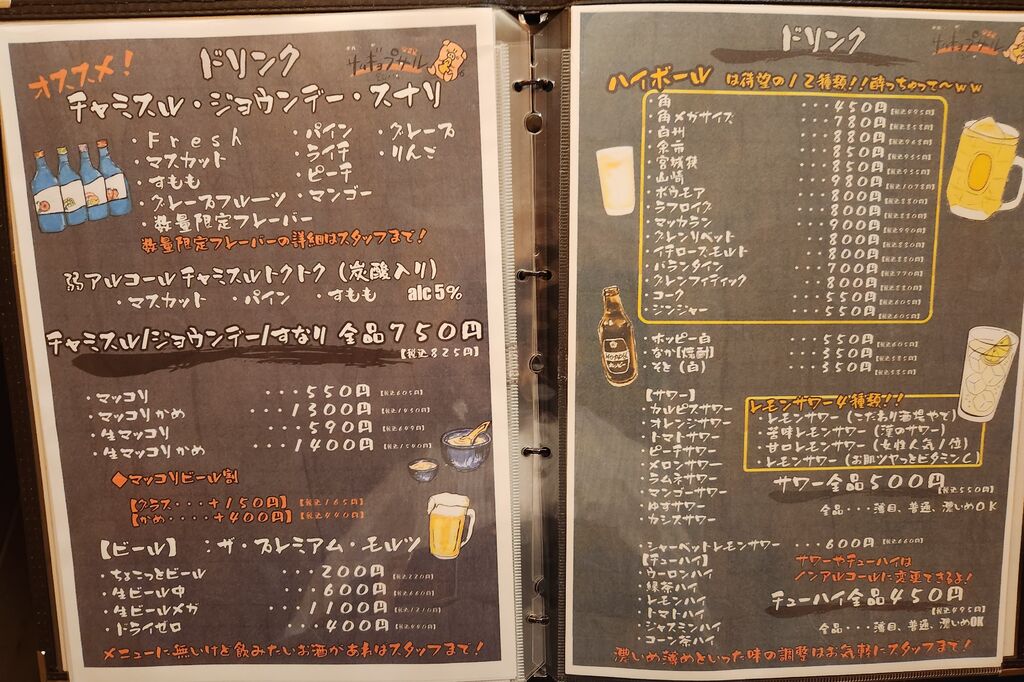 オススメ!
ドリンク
サムギョプサル
チャミスル・ジョウンデー・スナリ
・Fresh
・マスカット
・すもも
・グレープフルーツ
・数量限定フレーバー
・パイン
・ライチ
・ピーチ
・マンゴー
・グレープ
・りんご
数量限定フレーバーの詳細はスタッフまで!
弱アルコールチャミスルトクトク(炭酸入り)
・マスカット ・パイン ・すもも alc5%
チャミスル/ジョウンデー/すなり 全品750円
【税込825円】
・マッコリ ・・・550円【税込605円】
・マッコリかめ ・・・1300円【税込1430円】
・生マッコリ ・・・590円【税込649円】
・生マッコリかめ ・・・1400円【税込1540円】
◆マッコリビール割
【グラス・・・+150円】【税込165円】
【かめ・・・・+400円】【税込440円】
【ビール】 :ザ・プレミアム・モルツ
・ちょこっとビール ・・・200円【税込220円】
・生ビール中 ・・・600円【税込660円】
・生ビールメガ ・・・1100円【税込1210円】
・ドライゼロ ・・・400円【税込440円】
メニューに無いけど飲みたいお酒があればスタッフまで!
ドリンク
ハイボール は待望の12種類!!酔っちゃって〜ww
・角 ・・・450円【税込495円】
・角メガサイズ ・・・780円【税込858円】
・白州 ・・・880円【税込968円】
・余市 ・・・850円【税込935円】
・宮城狭 ・・・850円【税込935円】
・山崎 ・・・980円【税込1078円】
・ボウモア ・・・800円【税込880円】
・ラフロイグ ・・・800円【税込880円】
・マッカラン ・・・900円【税込990円】
・グレンリベット ・・・800円【税込880円】
・イチローズモルト ・・・800円【税込880円】
・バランタイン ・・・700円【税込770円】
・グレンフィディック ・・・800円【税込880円】
・コーク ・・・550円【税込605円】
・ジンジャー ・・・550円【税込605円】
・ホッピー白 ・・・550円【税込605円】
・なか【焼酎】 ・・・350円【税込385円】
・そと(白) ・・・350円【税込385円】
【サワー】
・カルピスサワー
・オレンジサワー
・トマトサワー
・ピーチサワー
・メロンサワー
・ラムネサワー
・マンゴーサワー
・ゆずサワー
・カシスサワー
レモンサワー4種類!!
・レモンサワー(こだわり酒場やで)
・苦味レモンサワー(漢のサワー)
・甘口レモンサワー(女性人気1位)
・レモンサワー(お肌ツヤっとビタミンC)
サワー全品500円【税込550円】
全品・・・薄目、普通、濃いめOK
・シャーベットレモンサワー ・・・600円【税込660円】
【チューハイ】
・ウーロンハイ
・緑茶ハイ
・レモンハイ
・トマトハイ
・ジャスミンハイ
・コーン茶ハイ
サワーやチューハイは
ノンアルコールに変更できるよ!
チューハイ全品450円
【税込495円】
全品・・・薄目、普通、濃いめOK
濃いめ薄めといった味の調整はお気軽にスタッフまで!